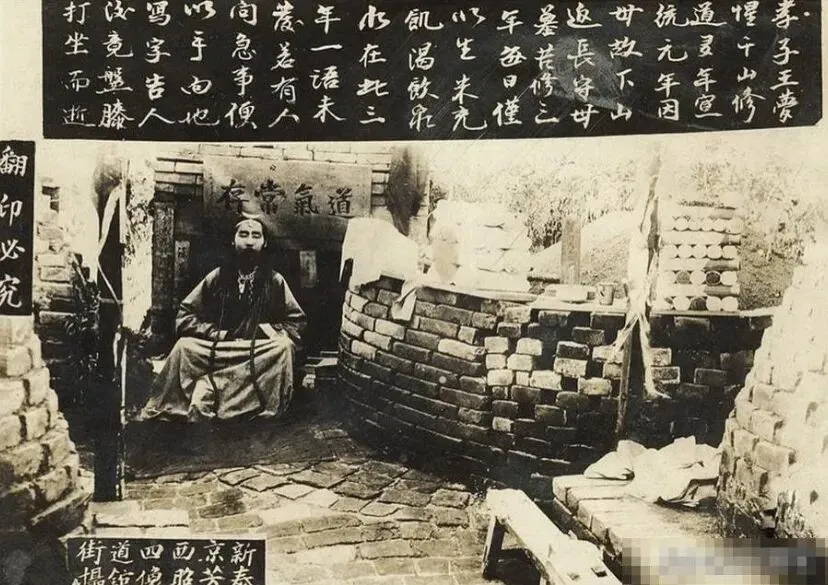 孝子王夢
惺千山修
道五年宣
統元年因
母故下山
返長守母
墓苦修三
年每日僅
以生米充
飢渴飲泉
水在此三
年一語未
發若有人
問急事便
以手向地
寫字告人
後竟盤膝
打坐而逝
翻印必究
道氣常存
新京西四道街
奉芳照像館攝